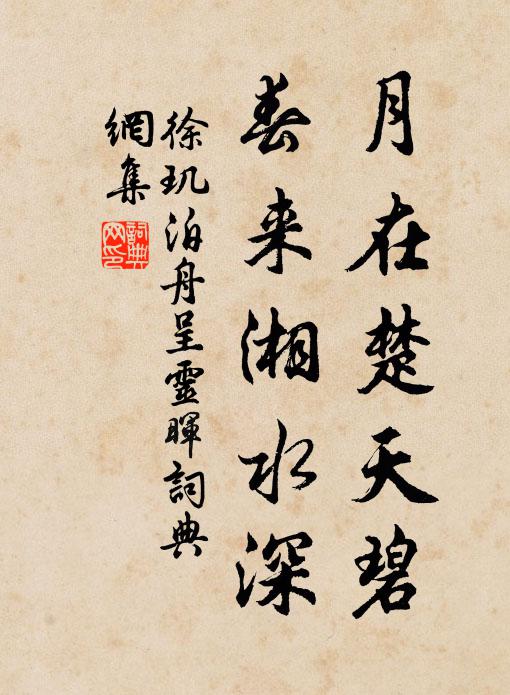 月在楚天碧
春来湘水深
徐玑泊舟呈靈暉詞典
網集
詞典
网印